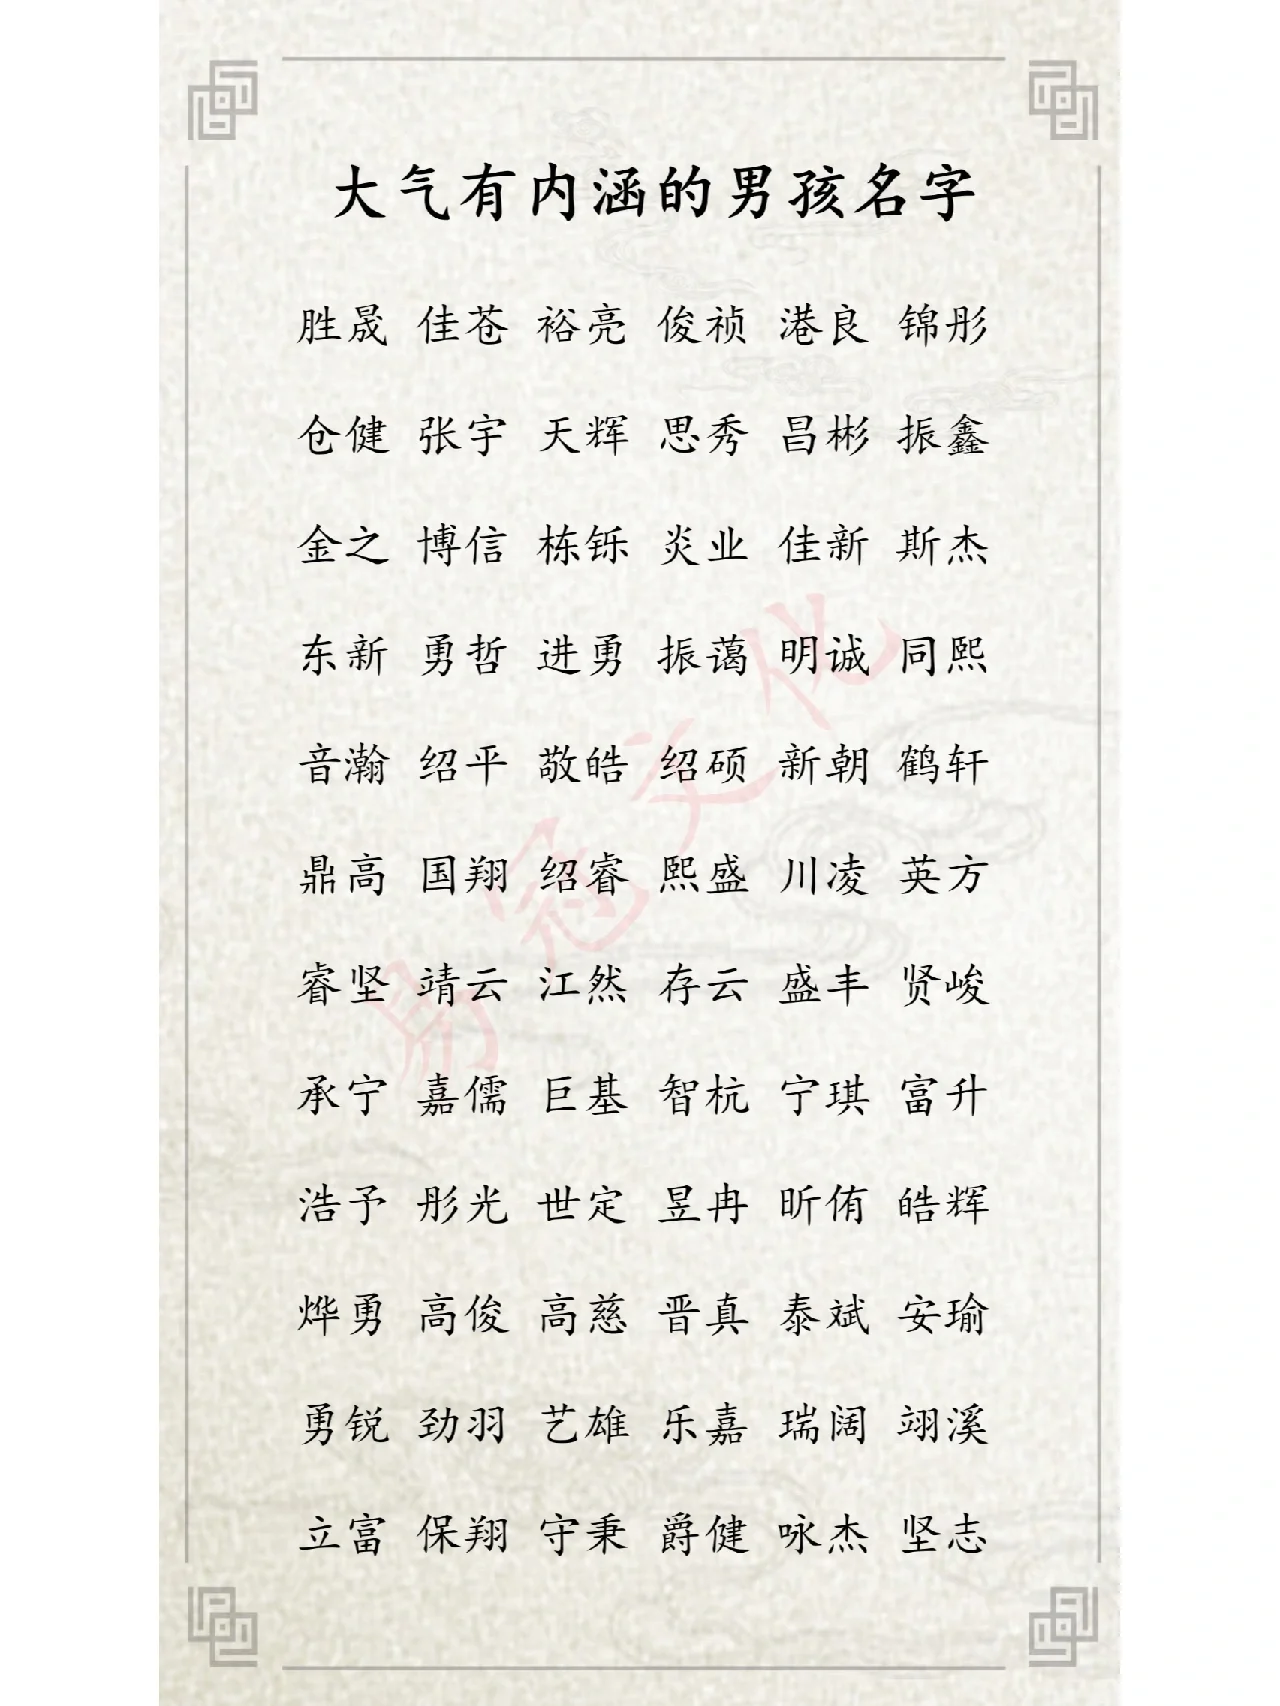 大气有内涵的男孩名字
胜晟 佳苍 裕亮 俊祯 港良 锦彤
仓健 张宇 天辉 思秀 昌彬 振鑫
金之 博信 栋铄 炎业 佳新 斯杰
东新 勇哲 进勇 振蔼 明诚 同熙
音瀚 绍平 敬皓 绍硕 新朝 鹤轩
鼎高 国翔 绍睿 熙盛 川凌 英方
睿坚 靖云 江然 存云 盛丰 贤峻
承宁 嘉儒 巨基 智杭 宁琪 富升
浩予 彤光 世定 昱冉 昕侑 皓辉
烨勇 高俊 高慈 晋真 泰斌 安瑜
勇锐 劲羽 艺雄 乐嘉 瑞阔 翊溪
立富 保翔 守秉 爵健 咏杰 坚志
易冠文化